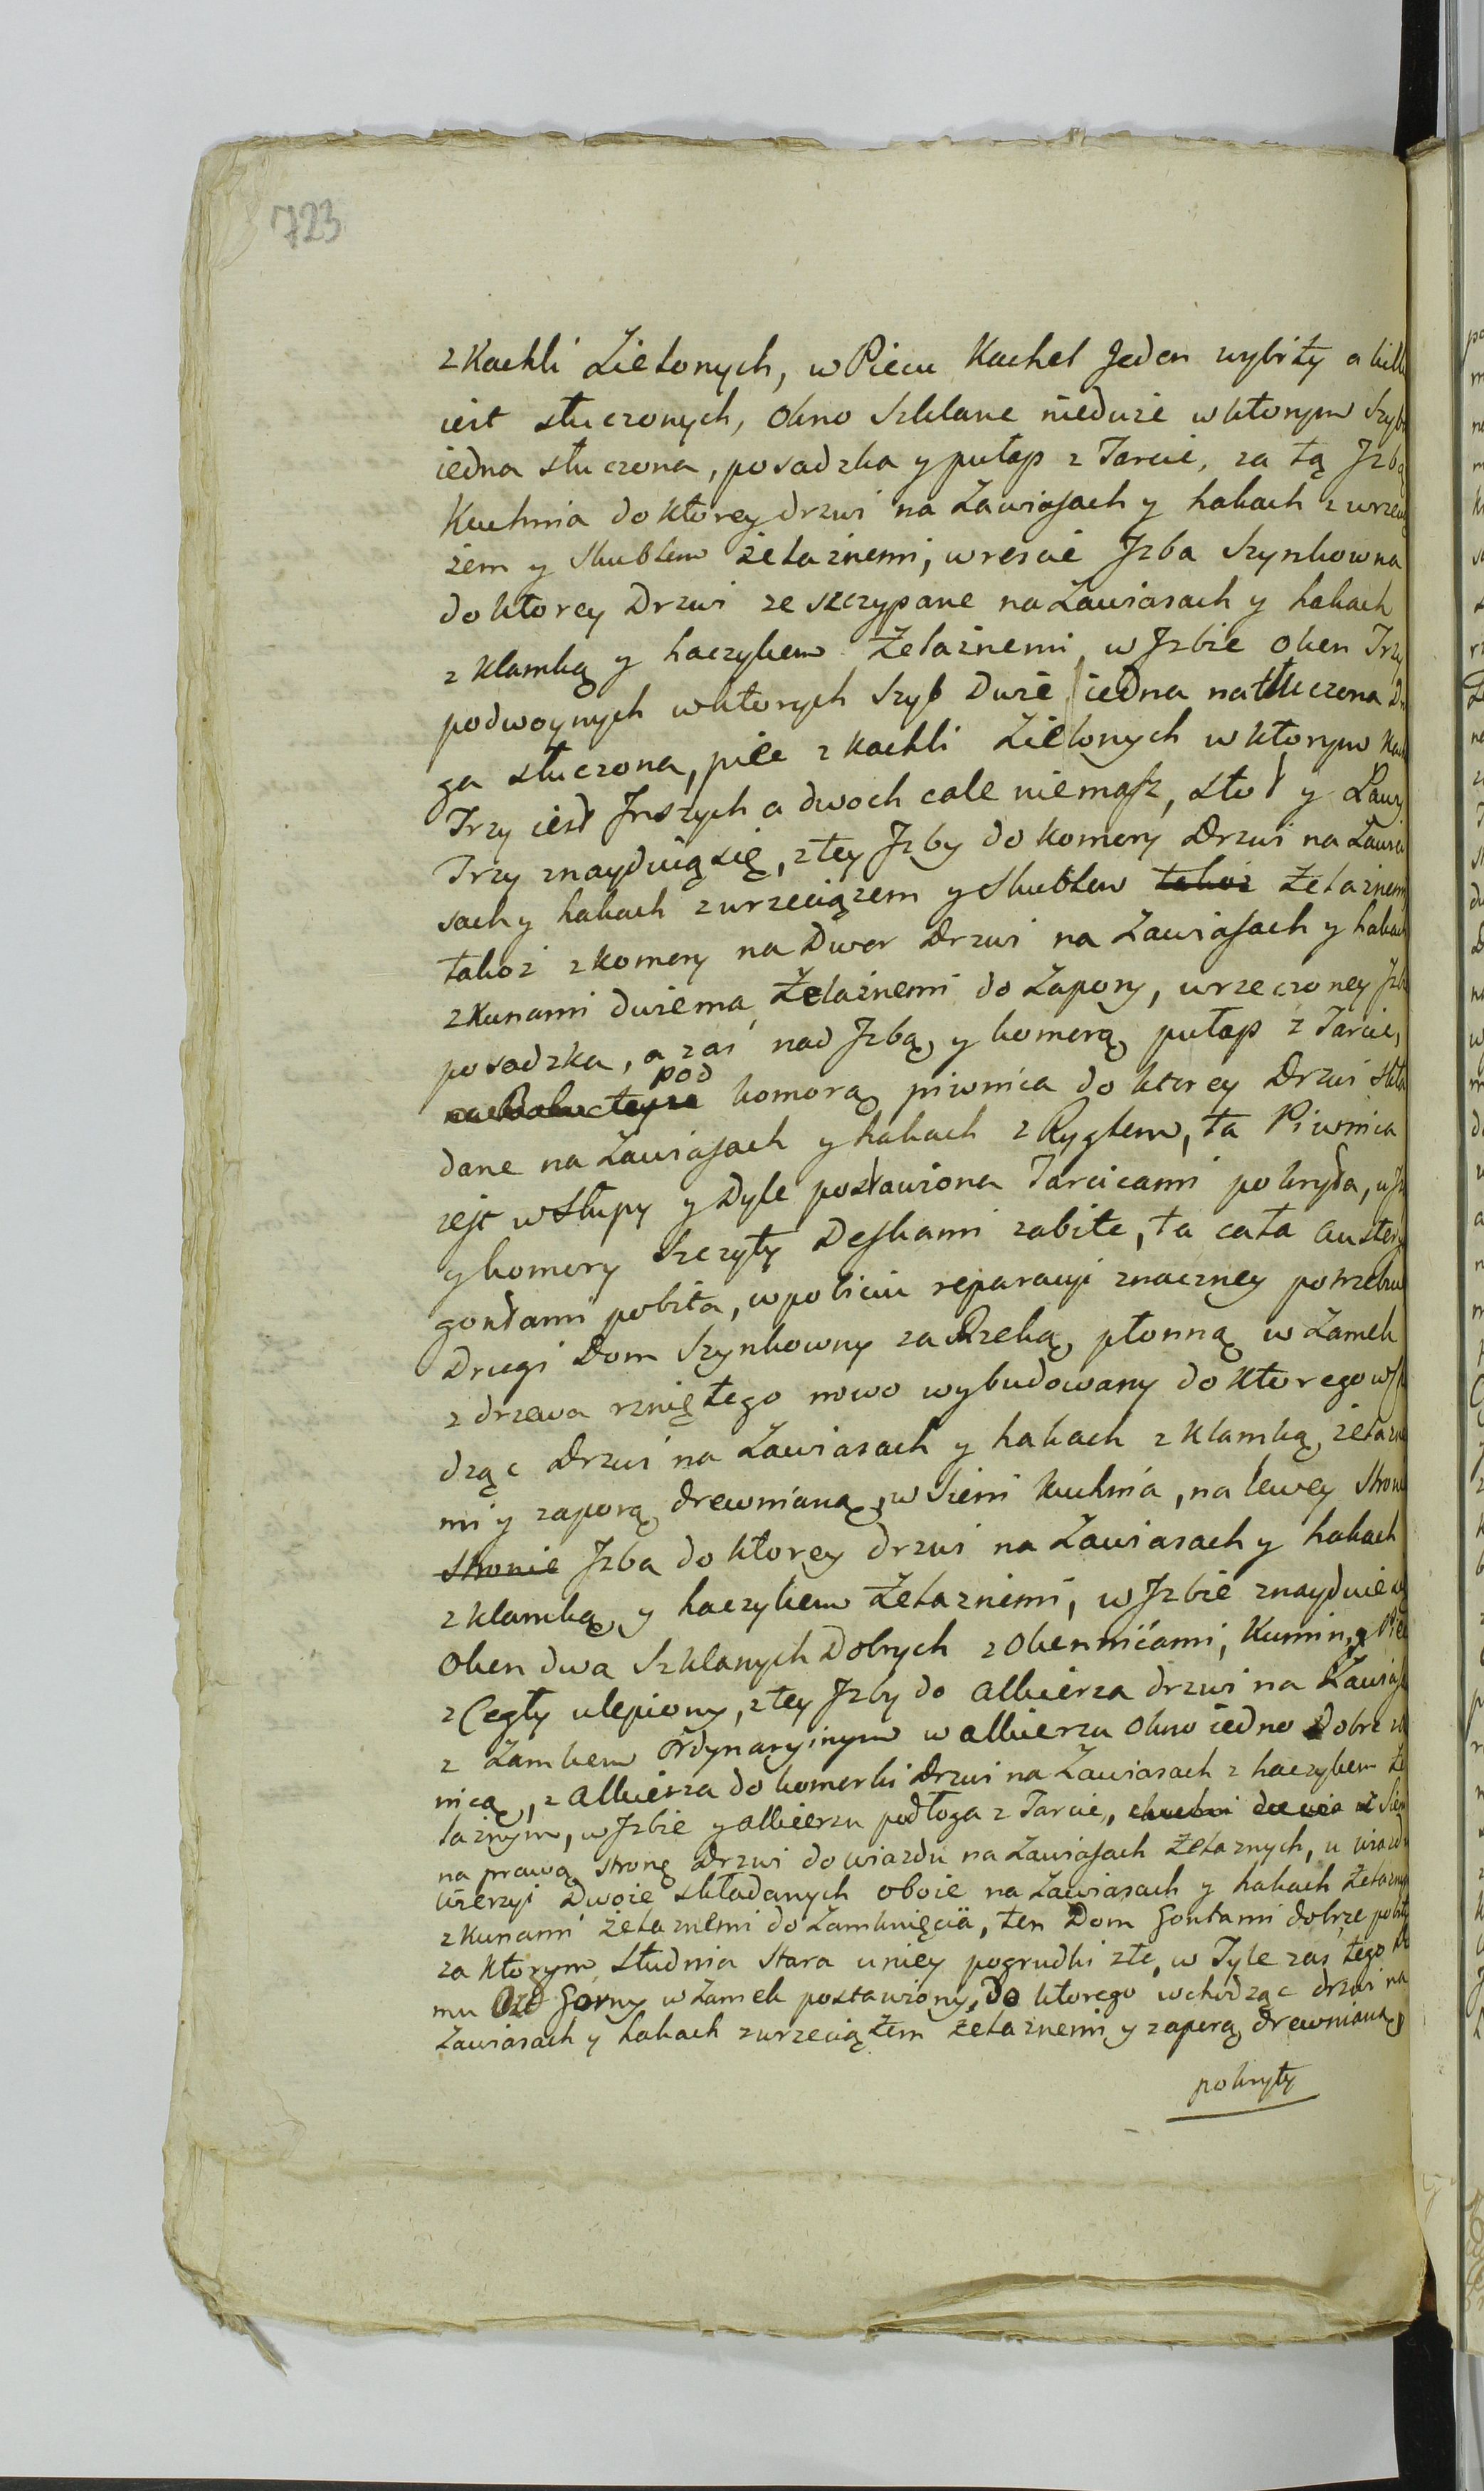 723
z Kachli Zielonych, w Piecu Kachel Jeden wybity a kilk
iest stłuczonych, Okno Szklane nieduże w ktorym Szyb
iedna stłuczona, posadzka y pułap z Tarcic, za tą Jzbą
Kuchnia do ktorey drzwi na Zawiasach y hakach z wrzeci
żem y Skublem żelaznemi, wrescie Jzba Szynkowna
do ktorey Drzwi ze szczypane na Zawiasach y hakach
z klamką y haczykiem Żelaznemi, w Jzbie Okien Trzy
podwoynych w ktorych Szyb Dwie iedna natłuczona Dr
ga stłuczona, piec z kachli Zielonych w ktorym Kac
Trzy iest Jnszych a dwoch cale niemasz, stoł y Ławy
Trzy znayduią się, z tey Jzby do komory Drzwi na Zawia
sach y hakach z wrzeciążem y Skublem także Żelaznemi
takoż z komory na Dwor Drzwi na Zawiasach y hakach
z kunami dwiema Żelaznemi do Zapory, w rzeczoney Jzb
posadzka, a zaś nad Jzbą y komorą pułap z Tarcic,
pod
komorą piwnica do ktorey Drzwi skła
dane na Zawiasach y hakach z Ryglem, ta Piwnica
iest w Słupy y Dyle postawiona Tarcicami pokryta, u Jz
y komory Szczyty Deskami zabite, ta cała Austery
gontami pobita, w pobiciu reparacyi znaczney potrzebu
Drugi Dom Szynkowny za Rzeką płonną w Zamek
z drzewa rzniętego nowo wybudowany do ktorego wcho
dząc Drzwi na Zawiasach y hakach z klamką żelazne
mi y zaporą drewnianą, w Sieni kuchnia, na lewey stron
stronie Jzba do ktorey drzwi na Zawiasach y hakach
z klamką y haczykiem Żelaznemi, w Jzbie znayduie się
Okien dwa Szklanych Dobrych z Okennicami, Kumin, y Piec
z Cegły ulepiony, z tey Jzby do alkierza drzwi na Zawias
z Zamkiem Ordynaryinym w alkierzu Okno iedno Dobre z o
nicą, z alkierza do komorki Drzwi na Zawiasach z haczykiem Że
laznym, w Jzbie y alkierzu podłoga z Tarcic, z Sieni
na prawą stronę Drzwi do wiazdu na Zawiasach Żelaznych, u wiazdu
Wierzyi Dwoie składanych oboie na Zawiasach y hakach Żelaznym
z kunami żelaznemi do Zamknięcia, ten Dom Gontami dobrze pobity
za ktorym Studnia Stara u niey pogrudki złe, w Tyle zaś tego Do
mu Gorny w Zamek postawiony, do ktorego wchodząc drzwi na
Zawiasach y hakach z wrzeciążem żelaznemi y zaporą drewnianą
pokryty